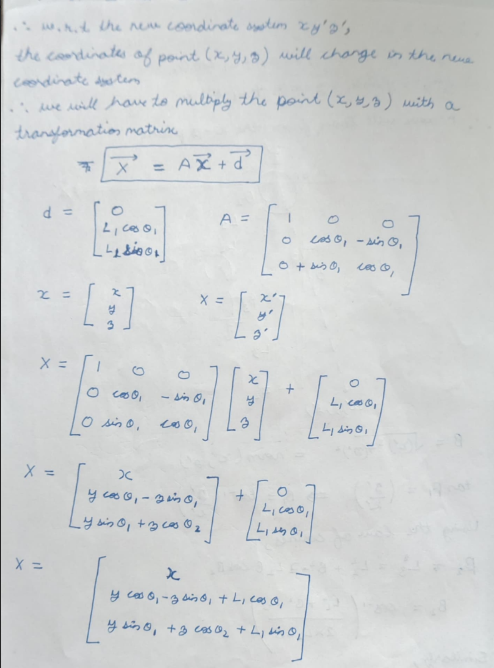 ∴ w.r.t the new coordinate system x y' z',
the coordinates of point (x, y, z) will change in the new
coordinate system
∴ we will have to multiply the point (x, y, z) with a
transformation matrix
X⃗ = A x⃗ + d⃗
d = [ 0 ; L₁ cosθ₁ ; L₁ sinθ₁ ] A = [ 1 0 0 ; 0 cosθ₁ - sinθ₁ ; 0 + sinθ₁ cosθ₁ ]
x = [ x ; y ; z ] X = [ x' ; y' ; z' ]
X = [ 1 0 0 ; 0 cosθ₁ - sinθ₁ ; 0 sinθ₁ cosθ₁ ] [ x ; y ; z ] + [ 0 ; L₁ cosθ₁ ; L₁ sinθ₁ ]
X = [ x ; y cosθ₁ - z sinθ₁ ; y sinθ₁ + z cosθ₂ ] + [ 0 ; L₁ cosθ₁ ; L₁ sinθ₁ ]
X = [ x ; y cosθ₁ - z sinθ₁ + L₁ cosθ₁ ; y sinθ₁ + z cosθ₂ + L₁ sinθ₁ ]